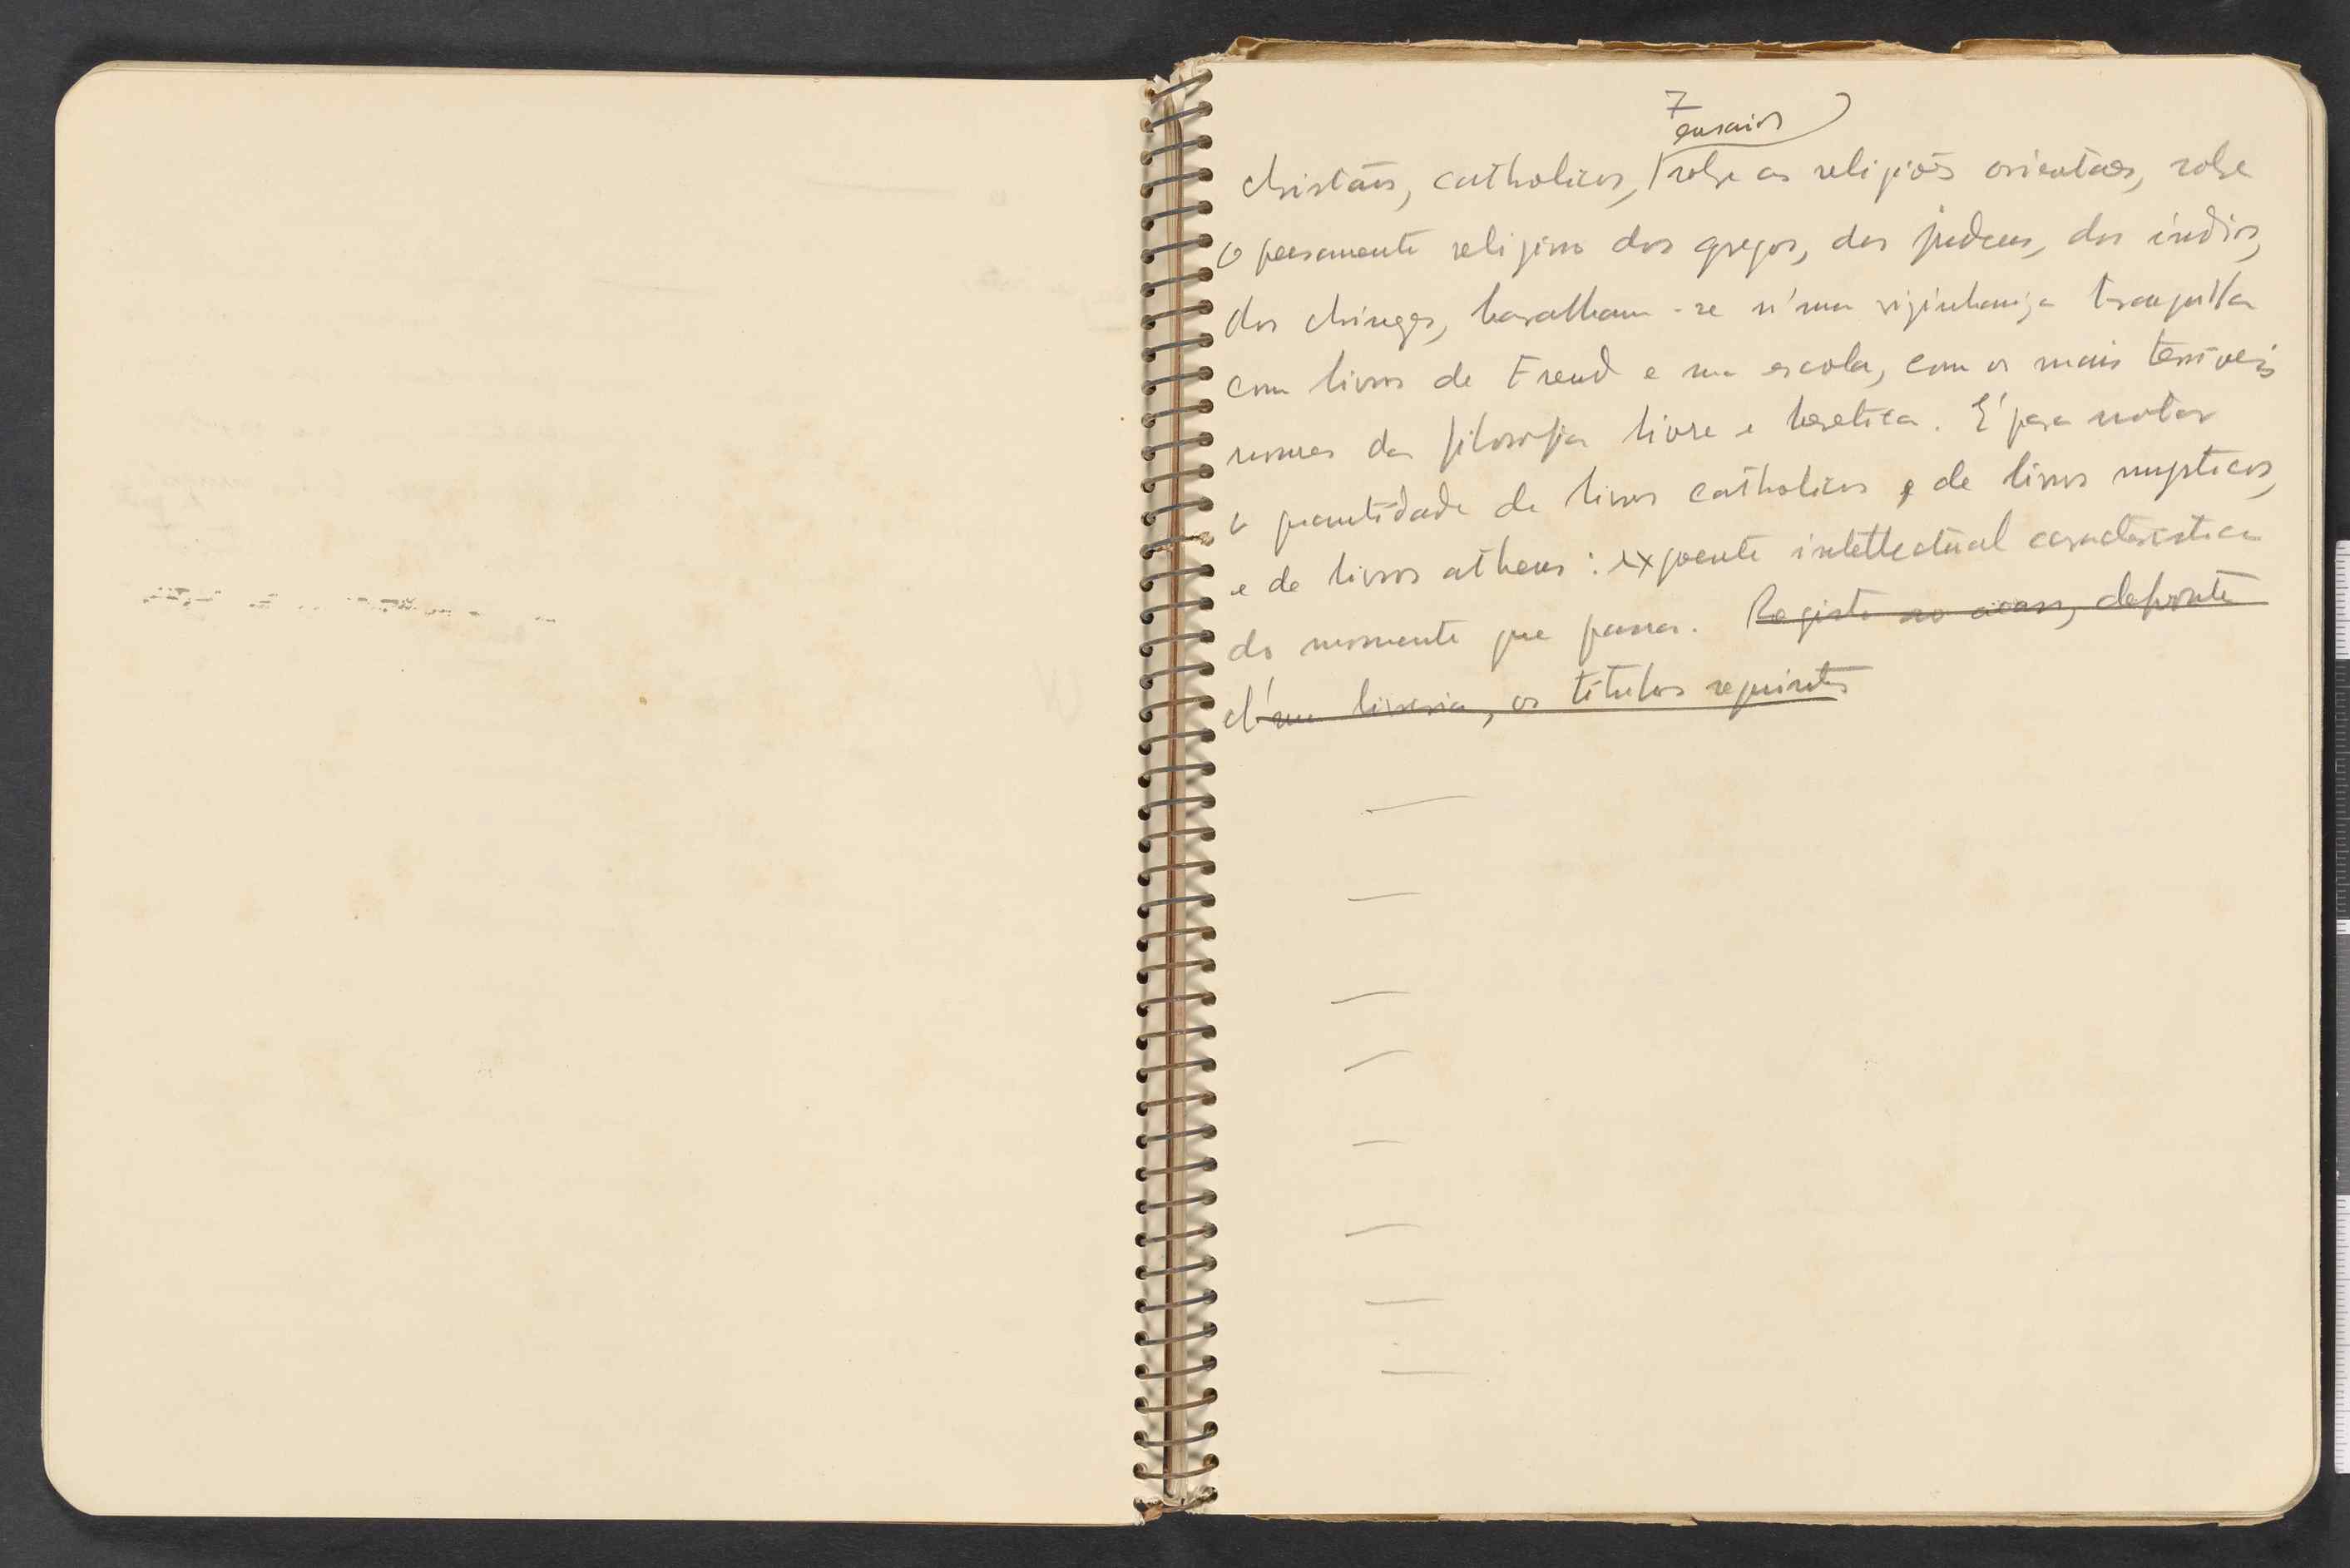 7
ensaios
christãos, catholicos, sobre as religiões orientaes, sobre
o pensamento religioso dos gregos, dos judeus, dos índios,
dos chinezes, baralham-se n'uma vizinhança tranquilla
com livros de Freud e sua escola, com os mais terríveis
nomes da filosofia livre e heretica. É para notar
a quantidade de livros catholicos e de livros mysticos,
e de livros atheus: expoente intellectual caracteristico
do momento que passa. Registo ao acaso, defronte
d'uma livraria, os títulos seguintes